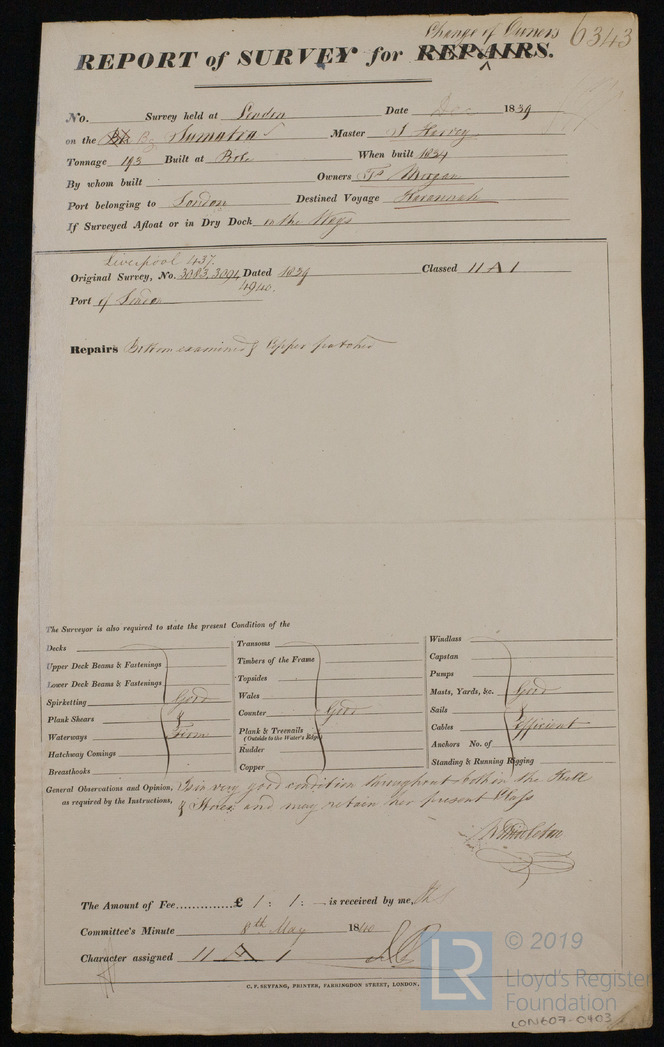 Change of Owners 6343
REPORT of SURVEY for REPAIRS.
No. Survey held at London Date Dec 1839
on the Bg Sumatra Master J Hervey
Tonnage 193 Built at When built 1834
By whom built Owners Morgan
Port belonging to London Destined Voyage Havannah
If Surveyed Afloat or in Dry Dock on the Ways
Liverpool 437.
Original Survey, No. 3083, 3091, Dated 1839 Classed 11 A 1
4940.
Port of London
Repairs Bottom examined & Copper patched
The Surveyor is also required to state the present Condition of the
Decks Transoms Windlass
Upper Deck Beams & Fastenings Timbers of the Frame Capstan
Lower Deck Beams & Fastenings Topsides Pumps
Spirketting Good Wales Masts, Yards, &c. Good
Plank Shears & Counter Good Sails &
Waterways Firm Plank & Treenails (Outside to the Water's Edge) Cables Efficient
Hatchway Comings Rudder Anchors No. of
Breasthooks Copper Standing & Running Rigging
General Observations and Opinion, Is in very good condition throughout both in the Hull
as required by the Instructions, & Stores and may retain her present Class
Middleton
The Amount of Fee..............£ 1 : 1 : - is received by me,
Committee's Minute 8th May 1840
Character assigned 11 A 1
C. F. SEYFANG, PRINTER, FARRINGDON STREET, LONDON.
LR © 2019
Lloyd's Register
Foundation
LON607-0403